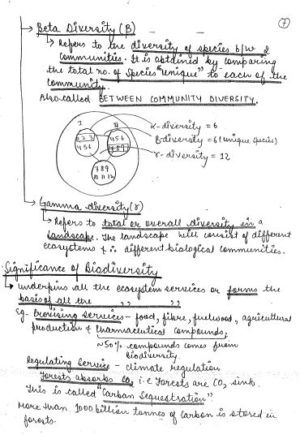 7
Beta Diversity (β)
Refers to the diversity of species b/w 2
communities. It is obtained by comparing
the total no. of species "unique" to each of the
community.
Also called BETWEEN COMMUNITY DIVERSITY.
I II
1 2 3 4 5 6
4 5 6 7 8 9
7 8 9
10 11 12
α-diversity = 6
β-diversity = 6 (unique species)
γ-diversity = 12
Gamma diversity (γ)
Refers to total or overall diversity in a
landscape. The landscape will consist of different
ecosystems & is different biological communities.
Significance of biodiversity
underpins all the ecosystem services or forms the
basis of all the ,, ,,
eg. Provising services - food, fibre, fuelwood, agricultural
production & Pharmaceutical compounds,
~50% compounds comes from
biodiversity
Regulating Service - climate regulation
Forests absorbs CO₂ i.e Forests are CO₂ sink.
This is called "Carban Sequestration"
More than 1000 billion tonnes of carbon is stored in
forests.